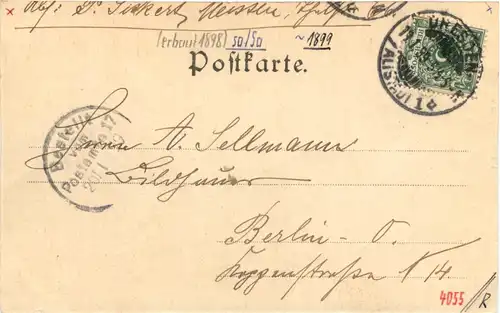 Abs: P. Sickert, Meissen,
(erbaut 1898) 50/50 ~1899
Postkarte.
DRESDEN
(AUSSTELLUNG)
Bestellt
vom
Postamte 17
Herrn A. Sellmann
Bildhauer
Berlin-O.
Koppenstraße N 14.
4055 R